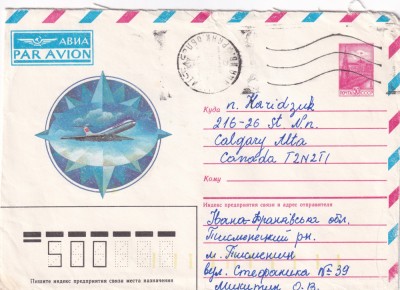 АВИА
PAR AVION
ПОЧТА СССР
Куда п. Haridzuk
216-26 St N.n.
Calgary Alta
Canada T2N2T1
Кому
Индекс предприятия связи и адрес отправителя
Івано-Франківська обл.
Тисменецький рн.
м. Тисмениця
вул. Стефаника № 39
Микитин О.В.
500
Пишите индекс предприятия связи места назначения